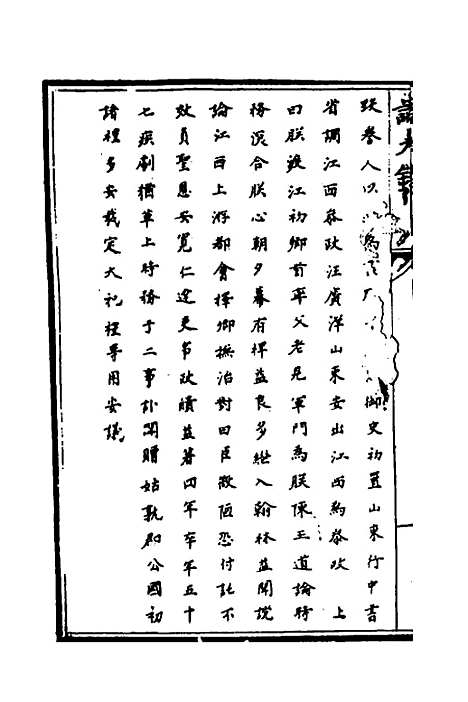 跋卷人以為御史初置山東行中書
省調江西叅政汪廣洋山東安出江西為叅政上
曰朕渡江初卿首率父老見軍門為朕陳王道論時
務深合朕心朝夕幕有裨益良多繼入翰林益聞説
論江西上游都會擇卿撫治對曰臣淺陋恐付託不
效負聖恩安寬仁達吏事政績益著四年卒年五十
七疾劇猶草上時務十二事訃聞贈姑孰郡公國初
諸禮多安裁定大祀禮專用安議